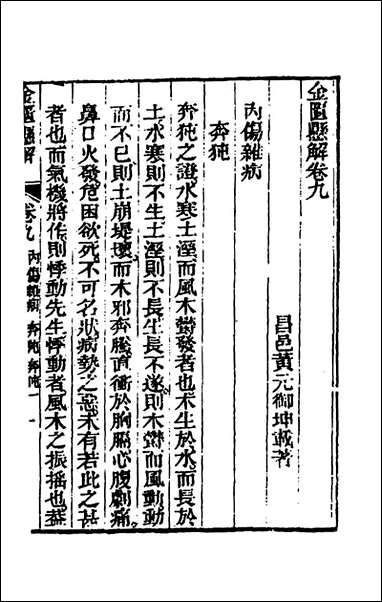 金匱懸解卷九
昌邑黃元御坤載著
內傷雜病
奔㹠
奔㹠之證水寒土溼而風木鬱發者也木生於水而長於
土水寒則不生土溼則不長生長不遂則木鬱而風動動
而不已則土崩堤壞而木邪奔騰直衝於胸膈心腹劇痛
鼻口火發危困欲死不可名狀病勢之惡未有若此之甚
者也而氣機將作則悸動先生悸動者風木之振搖也蓋
金匱懸解 卷九 內傷雜病 奔㹠 奔㹠一 一